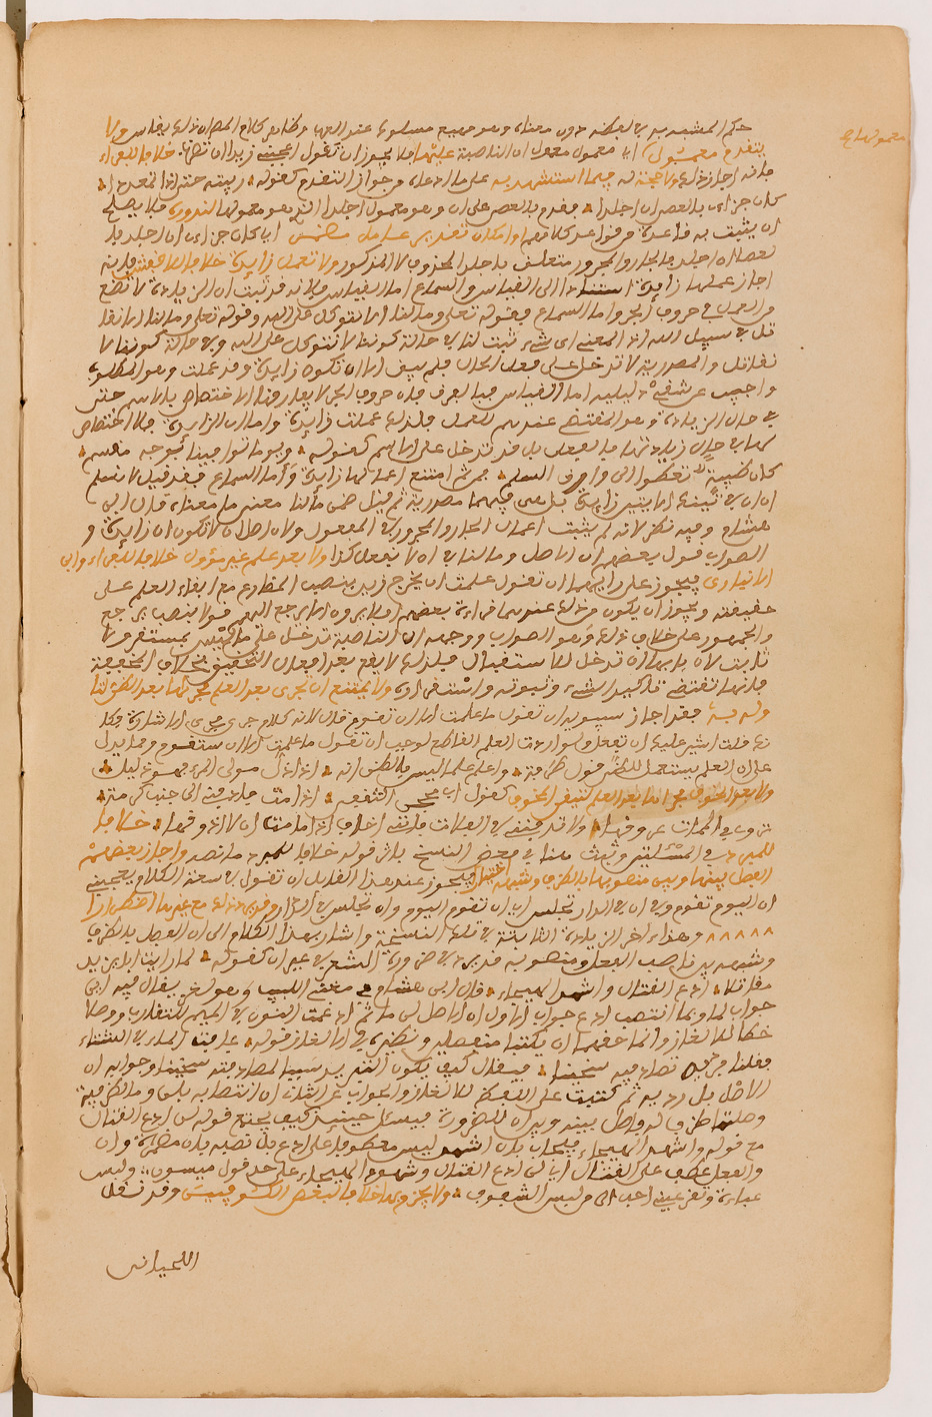 حكم المشبه به في لفظه دون معناه وهو مهيع مسلوك عند العرب وظاهر كلام المص ان ذلك يقاس ولا
يتقدم معمول أي معمول معمول ان الناصبة عليها فلا يجوز ان تقول اعجبني زيدا ان تضرب خلافا للفراء
فانه اجاز ذلك ولا حجة له فيما استشهد به على ما ادعاه من جواز التقدم كقوله ربيته حتى اذا تمعددا
كان جزائي بالعصا ان اجلدا فقدم بالعصا على ان وهو معمول اجلدا الذي هو معمولها لندوره فلا يصلح
ان يثبت به قاعدة من قواعد كلامهم او امكان تقدير عامل مضمر أي كان جزائي ان اجلد با
لعصا ان اجلد فالجار والمجرور متعلق باجلد المحذوف لا المذكور ولا تعمل زايدة خلافا للاخفش فانه
اجاز عملها زايدة استنادا الى القياس والسماع اما القياس فلانه قد ثبت ان الزيادة لا تمنع
من العمل في حروف الجر واما السماع فقوله تعلى وما لنا الا نتوكل على الله وقوله تعلى وما لنا الا نقا
تل في سبيل الله اذ المعنى اي شيء ثبت لنا في حالة كوننا لا نتوكل على الله وفي حالة كوننا لا
نقاتل والمصدرية لا تدخل على فعل الحال فلم يبق الا ان تكون زايدة وقد عملت وهو المطلوب
واجيب عن شقي دليليه اما القياس فبالفرق فان حروف الجر لا يفارقها الاختصاص بالاسم حتى
في حال الزيادة وهو المقتضي عندهم للعمل فلذلك عملت زايدة واما ان الزايدة فلا اختصاص
لها في حال زيادتها بالفعل بل قد تدخل على الاسم كقوله ويوما توافينا بوجه مقسم
كان ظبية تعطو الى وارق السلم فمن ثم امتنع اعمالها زايدة واما السماع فقد قيل لا نسلم
ان ان في تينك الايتين زايدة بل هي فيهما مصدرية ثم قيل ضمن ما لنا معنى ما منعنا وقال ابن
هشام وفيه نظر لانه لم يثبت اعمال الجار والمجرور في المفعول ولان الاصل ان لا تكون ان زايدة و
الصواب قول بعضهم ان الاصل وما لنا في ان لا نفعل كذا ولا بعد علم غير مؤول خلافا للفراء وابن
الانباري فيجوز على رايهما ان تقول علمت ان يخرج زيد بنصب المضارع مع ابقاء العلم على
حقيقته ويجوز ان يكون من ذلك عندهما قراءة بعضهم افلا يرون الا يرجع اليهم قولا بنصب يرجع
والجمهور على خلاف ذلك وهو الصواب ووجهه ان الناصبة تدخل على ما ليس بمستقر ولا
ثابت لان بابها ان تدخل للاستقبال فلذلك لا يقع بعد افعال التحقيق بخلاف المخففة
فانها تقتضي تاكيد الشيء وثبوته واستقراره ولا يمتنع ان تجري بعد العلم مجراها بعد الظن لتا
وله به فقد اجاز سيبويه ان تقول ما علمت الا ان تقوم قال لانه كلام جرى مجرى الاشارة فكا
نك قلت اشير عليك ان تفعل ولو اردت العلم القاطع لوجب ان تقول ما علمت الا ان ستقوم ومما يدل
على ان العلم يستعمل للظن قول طرفة واعلم علما ليس بالظن انه اذا ذل مولى المرء فهو ذليل
ولا بعد الخوف مجراها بعد العلم لتيقن المخوف كقول ابي محجن الثقفي اذا مت فادفني الى جنب كرمة
تروي عظامي في الممات عروقها ولا تدفنني في الفلاة فانني اخاف اذا ما مت ان لا اذوقها خلافا
للمبرد في المسئلتين وثبت هنا في بعض النسخ باثر قوله خلافا للمبرد ما نصه واجاز بعضهم
الفصل بينها وبين منصوبها بالظرف وشبهه اختيارا فيجوز عند هذا القايل ان تقول في سعة الكلام يعجبني
ان اليوم تقوم وفي ان في الدار تجلس اي ان تقوم اليوم وان تجلس في الدار وقد يرد ذلك مع غيرها اضطرارا
وهذا ءاخر الزيادة الثابتة في تلك النسخة واشار بهذا الكلام الى ان الفصل بالظرف
وشبهه بين ناصب الفعل ومنصوبه قد يرد في ضرورة الشعر في غير ان كقوله لما رايت ابا يزيد
مقاتلا ادع القتال واشهد الهيجاء قال ابن هشام في مغني اللبيب وهو لغز يقال فيه اين
جواب لما وبما انتصب ادع جواب الاول ان الاصل لن ما ثم ادغمت النون في الميم للتقارب ووصلا
خطا للالغاز وانما حقهما ان يكتبا منفصلين ونظيره في الالغاز قوله عافت الماء في الشتاء
فقلنا برديه تصادفيه سخينا فيقال كيف يكون التبريد سببا لمصادفته سخينا وجوابه ان
الاصل بل رديه ثم كتبت على لفظه للالغاز والجواب عن الثاني ان انتصابه بلن وما الظرفية
وصلتها ظرف له فاصل بينه وبين لن للضرورة فيسئل حينئذ كيف يجتمع قوله لن ادع القتال
مع قوله واشهد الهيجاء فيجاب بان اشهد ليس معطوفا على ادع بل نصبه بان مضمرة وان
والفعل عطف على القتال اي لن ادع القتال وشهود الهيجاء على حد قول ميسون ولبس
عباءة وتقر عيني احب الي من لبس الشفوف ولا يجزم بها خلافا لبعض الكوفيين وقد نقل
اللحياني
معمولها ح